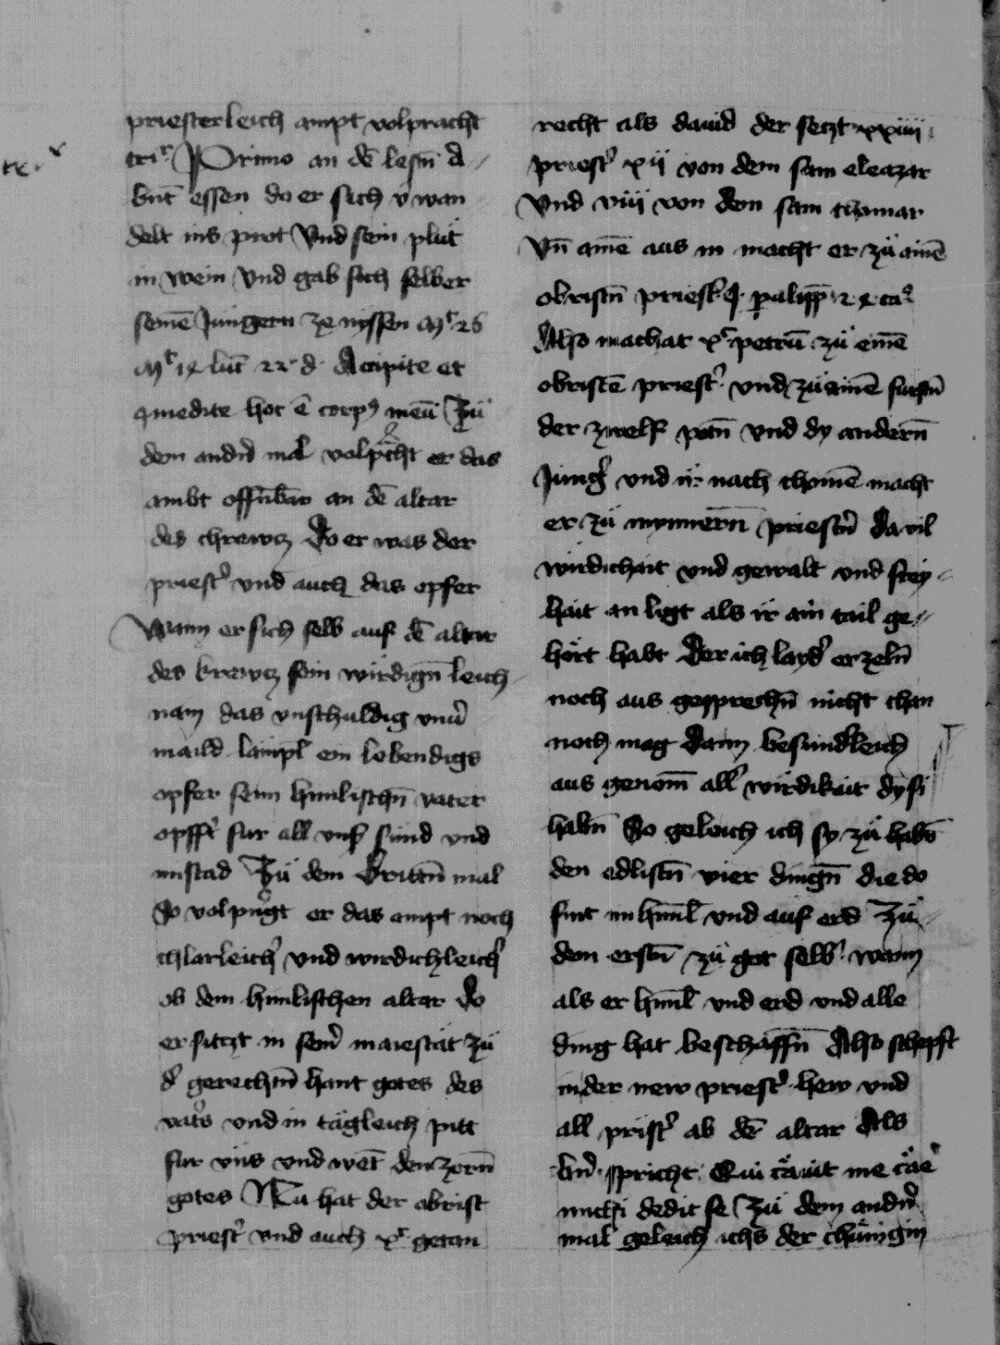 priesterleich ampt volpracht
trꝰ Primo an dē lestn̄ a
bnt̄ essen do er sich v̓wan
delt ins prot Vnd sein plüt
in wein Vnd gab sich selber
seinē Jungern ze nyssen Mͭ 26
Mͬ 14 luc̄ 22 · d · Accipite et
ꝯmedite hoc ē corpꝰ meū Zü
dem andn̓ mal volpᵃcht er das
ambt offn̄bar an dē altar
des chrewcz Do er was der
priest̓ vnd auch das opfer
Wann er sich selb auf dē altar
des krewcz sein wirdign̄ leich
nam das vnschuldig vnu̓
maild lampl̄ ein lebendigs
opfer seim himlischn̄ vater
opfft̓ fur all vns̓ sünd vnd
mistad Zü dem dritten̄ mal
So volpringt er das ampt noch
chlarleich̓ vnd wirdichleich̓
ob dem himlischen altar do
er siczt in sein̓ maiestät zü
d̓ gerechtn̄ hant gotes des
vat̓s vnd in tägleich pitt
fur vns vnd wēt den zorn̄
gotes Nu hat der obrist
priest̓ vnd auch xᵖc getan
recht als dauid der seczt xxiiii
priest̓ xvi von dem sam eleazar
Vnd viii von dem sam thamar
Vn̄ ainē aus in macht er zü ainē
obristn̄ priest̓ pᵃ palipp̄ 24 caꝰ
Also machat xᵖc petrū zü einē
obristē priest̓ · vnd zü ainē furstn̄
der zwelf potn̄ vnd dy andern̄
Jung̓ vnd ir nach chomē macht
er zü mynnern̄ priestn̓ da vil
wirdichait vnd gewalt vnd frey
hait an ligt als ir ain tail ge
hört habt Der ich layd̓ erzeln̄
noch aus gesprechn̄ nicht chan
noch mag Dann besunderleich
aus genom̄ all̓ wirdikait dy si
habn̄ So geleich ich sy zü habn̄
den edlistn̄ vier dingn̄ die do
sint im himl̄ vnd auf erd Zü
dem erstn̄ zü got selb̓ wann
als er himl̄ vnd erd vnd alle
ding hat beschaffn̄ Also schepft
in der new priest̓ hew vnd
all prist̓ ab dē altar Als
bn̓d spricht Qui cᵃuit me
michi dedit se Zü dem andn̓
mal geleich ichs der chünigin